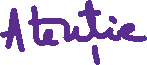 Atenție